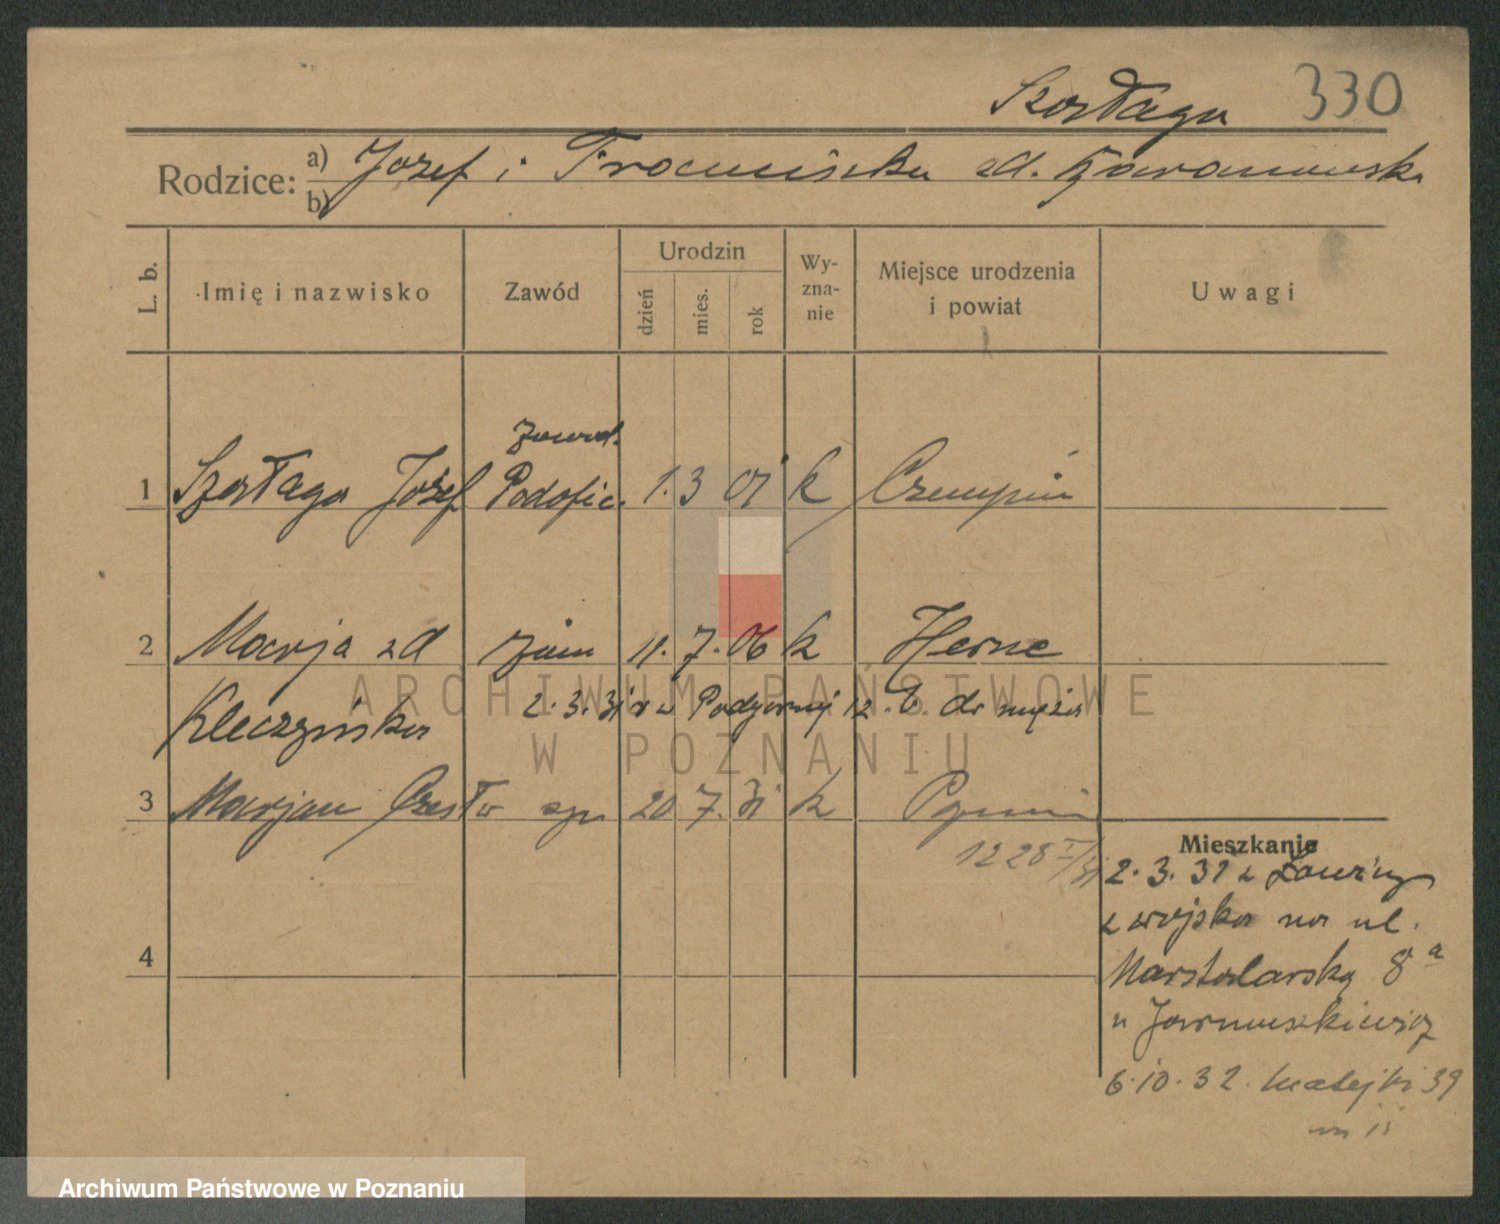 Szostaga 330
Rodzice: a) Józef i Franciszka zd.
b)
L. b.
Imię i nazwisko
Zawód
Urodzin
dzień
mies.
rok
Wy-
zna-
nie
Miejsce urodzenia
i powiat
Uwagi
zawod.
1 Szostaga Józef Podofic. 1. 3 01 k Czempiń
2 Marja zd żona 11. 7. 06 k Herne
Kleczyńska 2. 3. 31 r w 12. b. do męża
3 Marjan Czesław syn 20 7. 31 k
1228
Mieszkanie
2. 3. 31 z Ławicy
z wojska na ul.
4
Marstalarską 8 a
u Jarmuszkiewicz
6. 10. 32. Matejki 39
m
ARCHIWUM PAŃSTWOWE
W POZNANIU
Archiwum Państwowe w Poznaniu